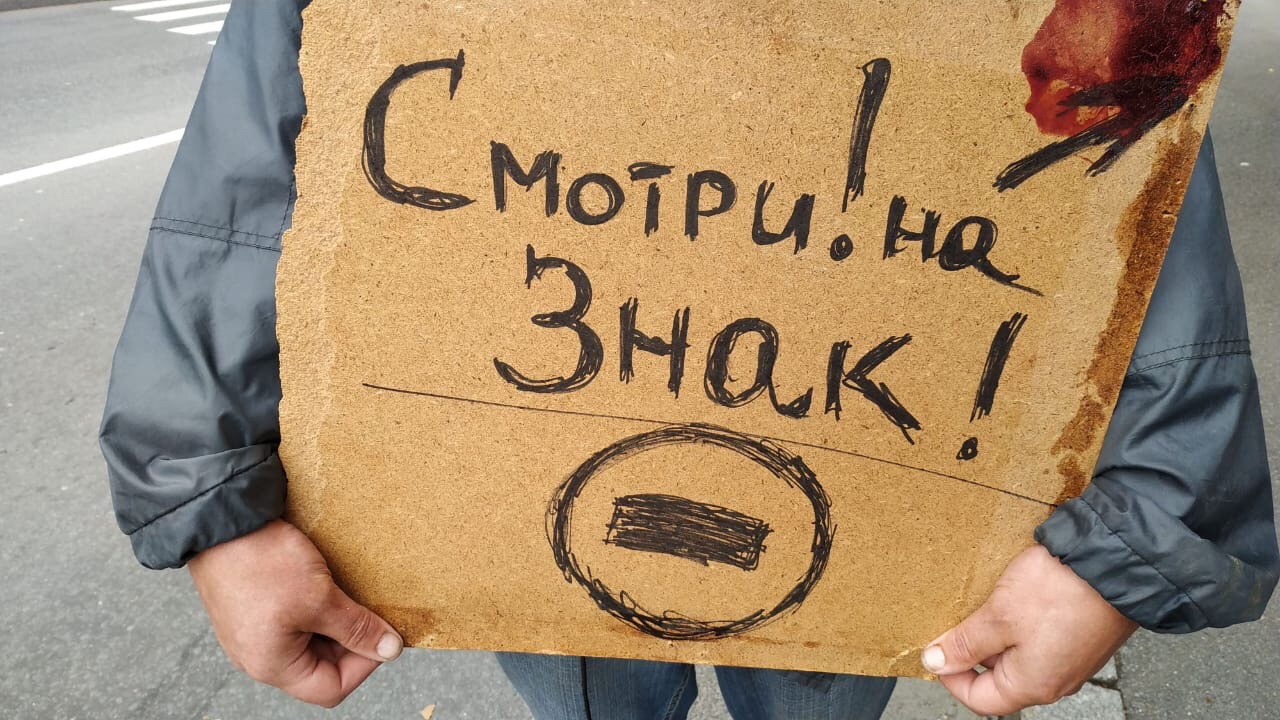 Смотри! на
Знак!